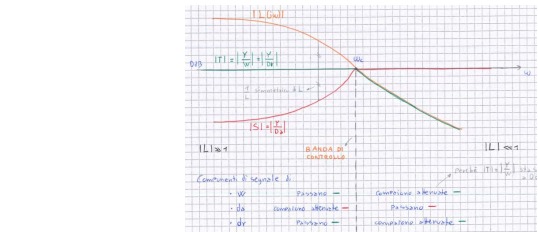 |L(jω)|
|T| = |Y/W| = |Y/Dr|
ωc
0dB
ω
1/L simmetrico di L
|S| = |Y/Da|
|L| ≫ 1
BANDA DI
CONTROLLO
|L| ≪ 1
perché |T| = |Y/W|
Componenti di segnale di
• W Passano – compaiono attenuate –
• da compaiono attenuate – Passano –
• dr Passano – compaiono attenuate –